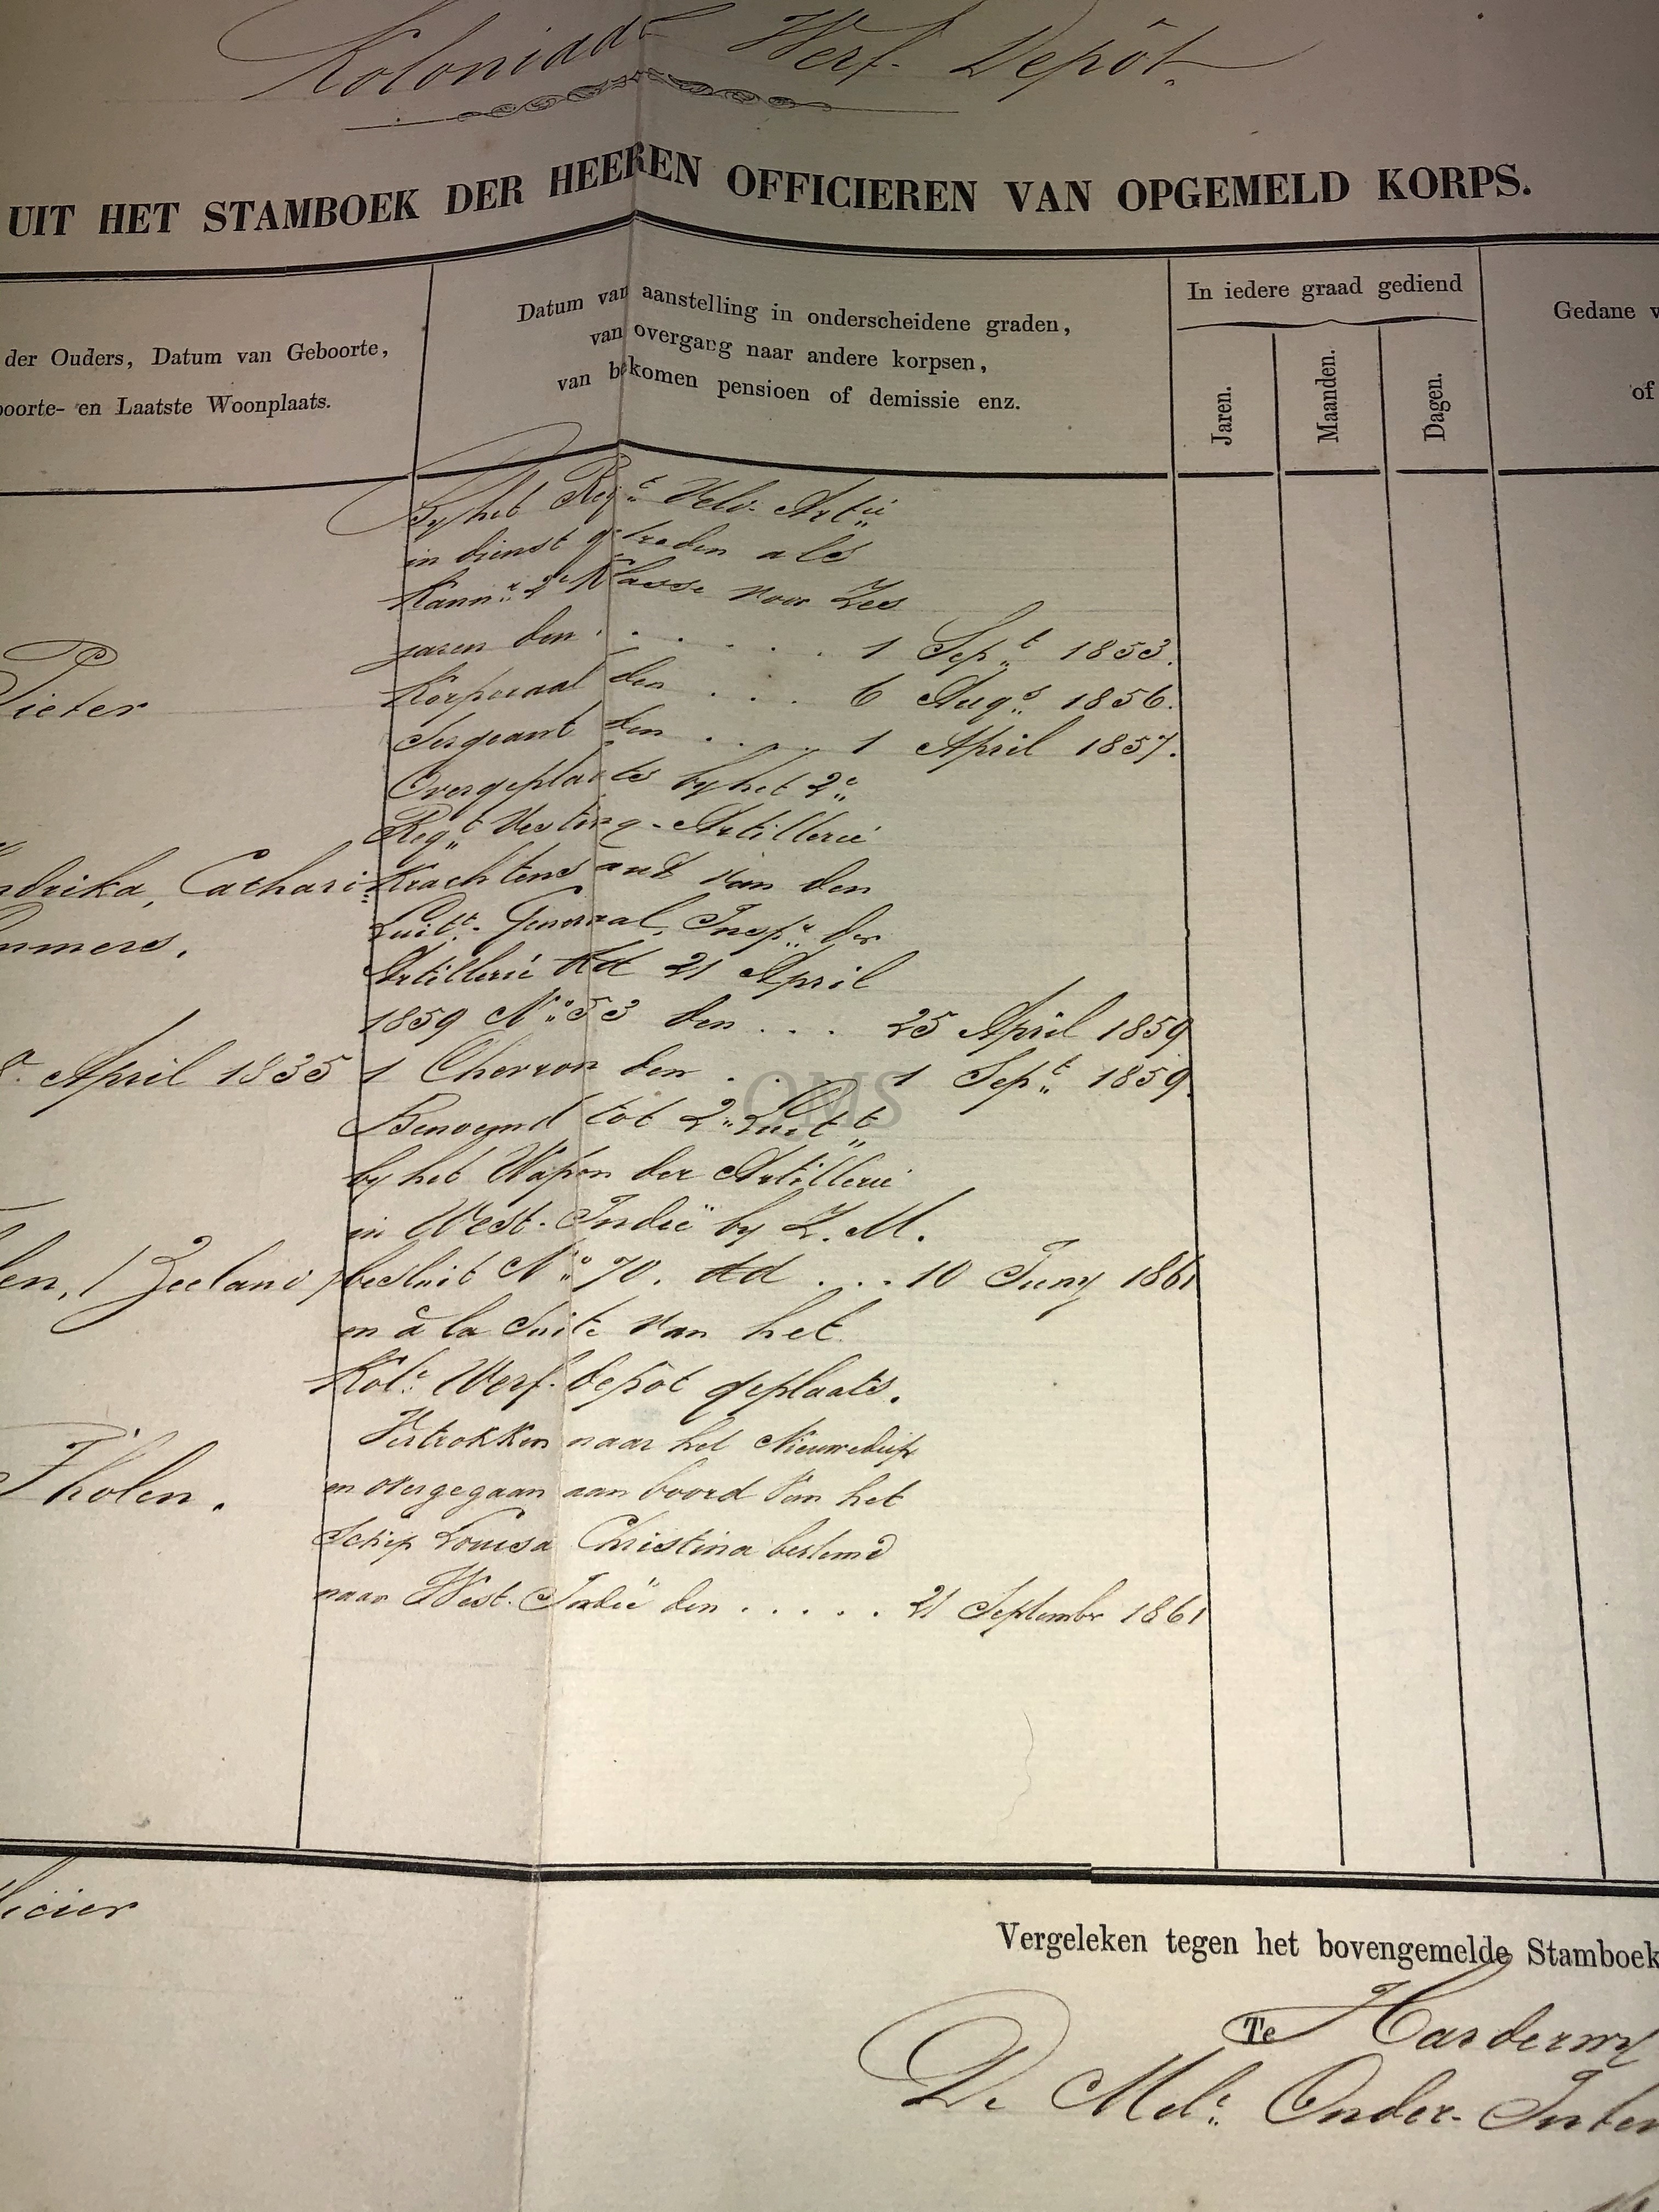 Koloniaal Werf-Depôt.
UIT HET STAMBOEK DER HEEREN OFFICIEREN VAN OPGEMELD KORPS.
der Ouders, Datum van Geboorte,
boorte- en Laatste Woonplaats.
Datum van aanstelling in onderscheidene graden,
van overgang naar andere korpsen,
van bekomen pensioen of demissie enz.
In iedere graad gediend
Jaren.
Maanden.
Dagen.
Gedane v
of
Pieter
ndrika, Cathari=
mmers.
April 1835
len, (Zeeland)
Tholen.
By het Reg.t Veld-Art.ie
in dienst getreden als
Kann.r 2e Klasse voor Zes
jaren den . . . . . . 1 Sep.t 1853.
Korporaal den . . . 6 Aug.s 1856.
Sergeant den . . . . 1 April 1857.
Overgeplaatst by het 2.e
Reg.t Vesting-Artillerie
Krachtens aut van den
Luit.t-Generaal, Insp.r der
Artillerie dd 21 April
1859 N.o 53 den . . . 25 April 1859
1 Chevron den . . . 1 Sep.t 1859.
Benoemd tot 2.e Luit.t
by het Wapen der Artillerie
in West-Indië by Z.M.
besluit N.o 70. dd . . . 10 Juny 1861
en à la Suite van het
Kol.e Werf-depôt geplaats.
Vertrokken naar het Nieuwediep
en overgegaan aan boord van het
Schip Louisa Christina bestemd
naar West-Indië den . . . . . 21 September 1861
OMS
Vergeleken tegen het bovengemelde Stamboek
Te Harderwy
De Mil.e Onder-Inten